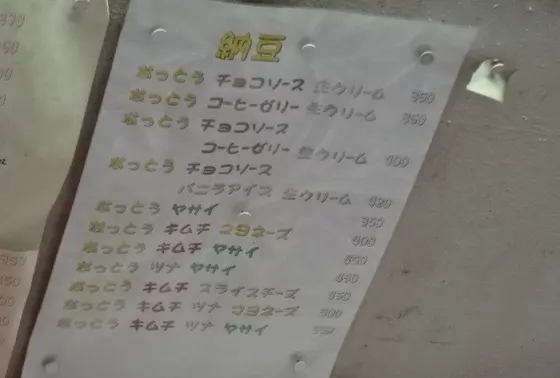 納豆
なっとう チョコソース 生クリーム 350
なっとう コーヒーゼリー 生クリーム 350
なっとう チョコソース
コーヒーゼリー 生クリーム 400
なっとう チョコソース
バニラアイス 生クリーム 420
なっとう ヤサイ 350
なっとう キムチ マヨネーズ 400
なっとう キムチ ヤサイ 450
なっとう ツナ ヤサイ 450
なっとう キムチ スライスチーズ 450
なっとう キムチ ツナ マヨネーズ 500
なっとう キムチ ツナ ヤサイ 550
350